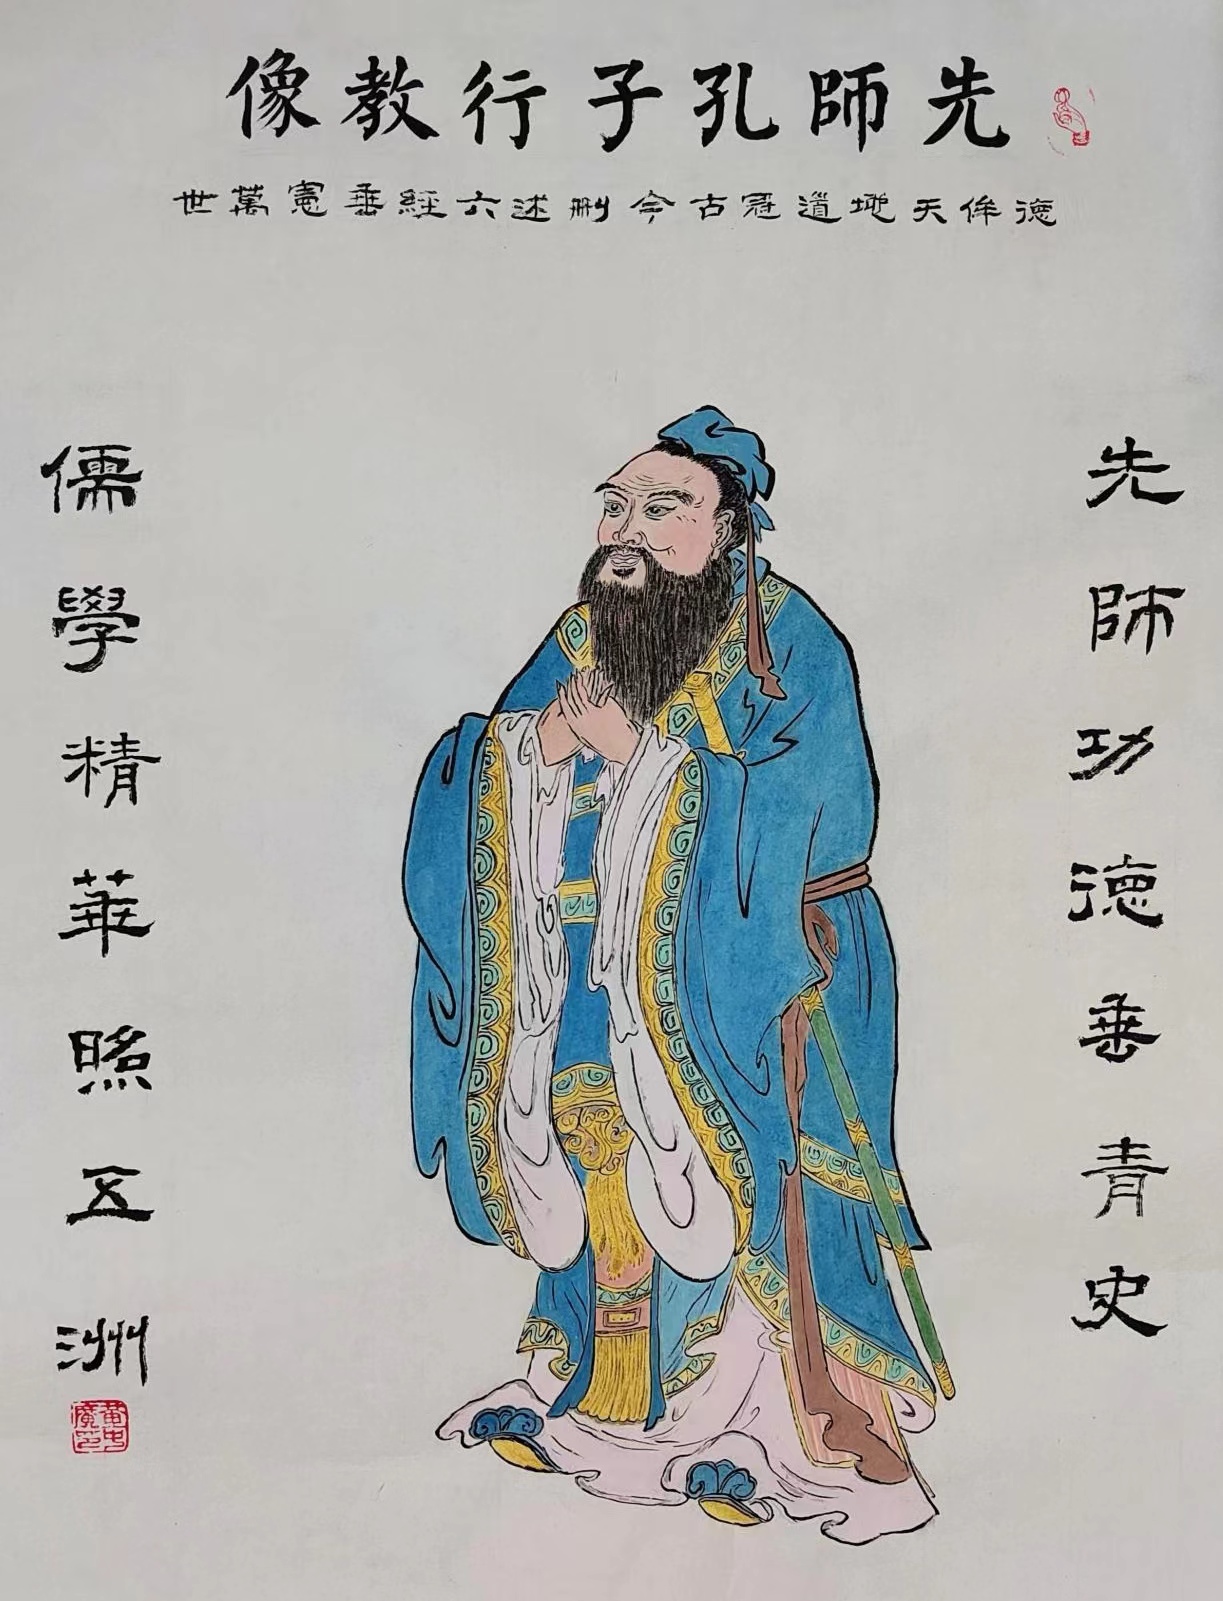 先師孔子行教像
德侔天地道冠古今刪述六經垂憲萬世
先師功德垂青史
儒學精華照五洲